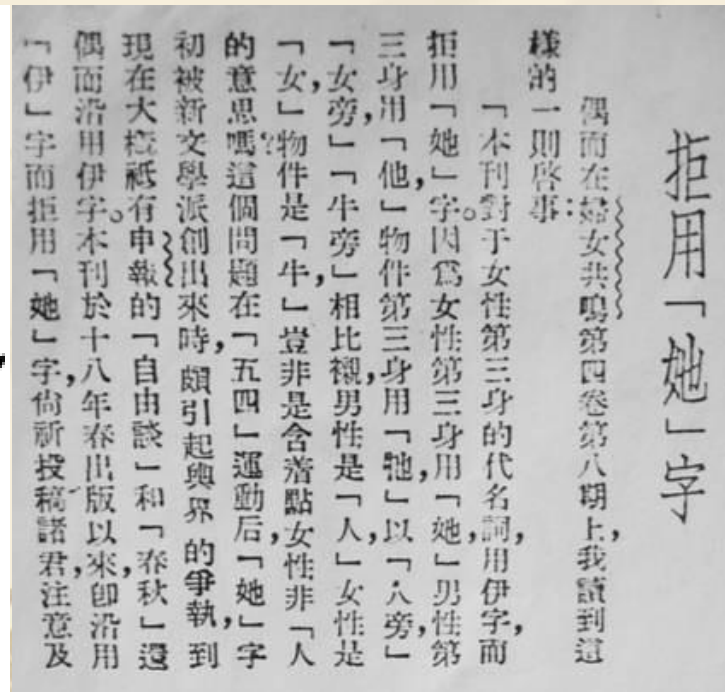 拒用「她」字
偶而在婦女共鳴第四卷第八期上，我讀到這
樣的一則啓事：
「本刊對于女性第三身的代名詞，用伊字，而
拒用「她」字。因爲女性第三身用「她」，男性第
三身用「他」，物件第三身用「牠」，以「人旁」
「女旁」，「牛旁」相比襯，男性是「人」，女性是
「女」，物件是「牛」，豈非是含着點女性非「人
的意思嗎？這個問題在「五四」運動后，「她」字
初被新文學派創出來時，頗引起輿界的爭執，到
現在大概祇有申報的「自由談」和「春秋」還
偶而沿用伊字。本刊於十八年春出版以來，卽沿用
「伊」字而拒用「她」字，尙祈投稿諸君，注意及